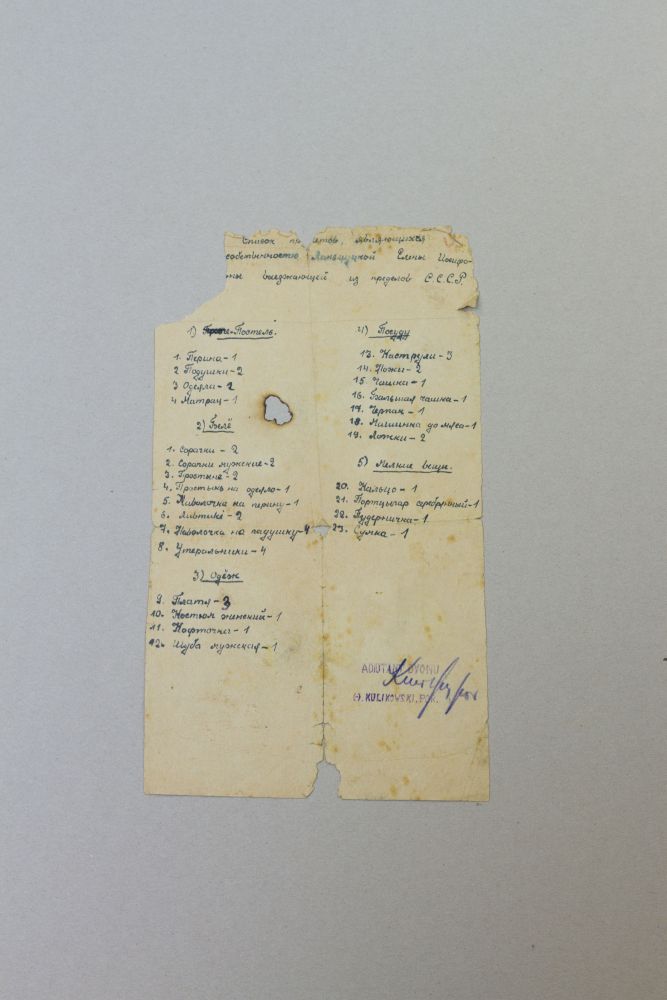 Список пр етов, являющихся
собственностью Ланьцуцкой Елены
ты выезжающей из пределов С.С.С.Р.
1) Постель.
1. Перина - 1
2 Подушки - 2
3 Одеяли - 2
4 Матрац - 1
2) Белё
1. Сорочки - 2
2. Сорочки мужские - 2
3. Простыне - 2
4. Простынь на одеяло - 1
5. Наволочка на перину - 1
6. - 2
7. Наволочка на падушку - 4
8. Утеральники - 4
3) Одёж
9. Платя - 3
10. Костюм женский - 1
11. Кофточка - 1
12. Шуба мужская - 1
4) Посуды
13. Каструли - 3
14. Ножы - 2
15. Чашка - 1
16. Большая чашка - 1
17. Черпак - 1
18. Машинка до мяса - 1
19. Ложки - 2
5) Мелкие вещи.
20. Кальцо - 1
21. Портцыгар серебряный - 1
22. Пудерничка - 1
23. Сумка - 1
ADIUTANT DYONU
(-). KULIKOWSKI, POR.